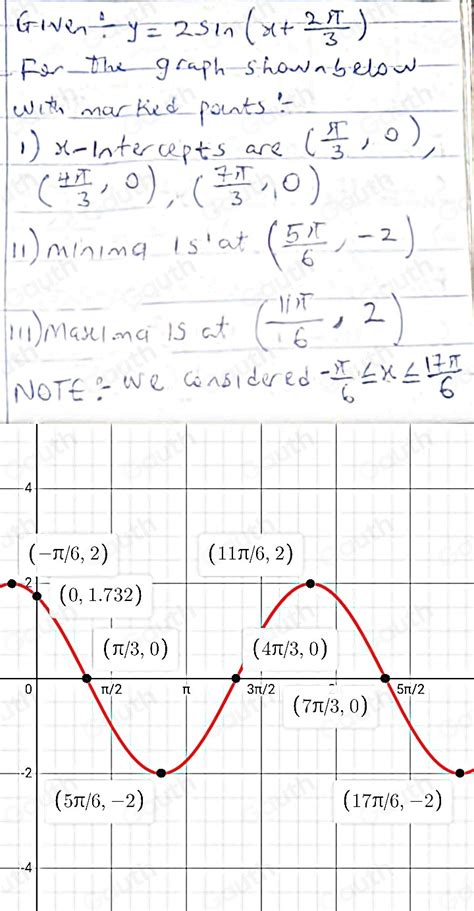 Given :- y = 2sin(x + 2π/3)
For the graph shown below
with marked points :-
i) x-Intercepts are (π/3, 0),
(4π/3, 0), (7π/3, 0)
ii) minima is at (5π/6, -2)
iii) Maxima is at (11π/6, 2)
NOTE :- We considered -π/6 ≤ x ≤ 17π/6
4
(−π/6, 2)
(11π/6, 2)
2
(0, 1.732)
(π/3, 0)
(4π/3, 0)
0
π/2
π
3π/2
5π/2
(7π/3, 0)
-2
(5π/6, −2)
(17π/6, −2)
-4